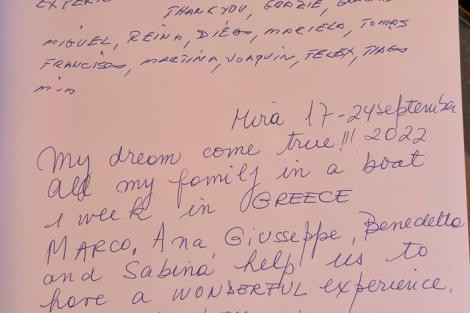 EXPERIE
THANK YOU, GRAZIE,
MIGUEL, REINA, DIEGO, MARIELA, TOMAS
FRANCISCO, MARTINA, JOAQUIN, FELIX, TIAGO
MIA
Mirà 17-24 september
My dream come true!!! 2022
All my family in a boat
1 week in GREECE
MARCO, Ana, Giusseppe, Benedetta
and Sabina help us to
have a WONDERFUL experience.